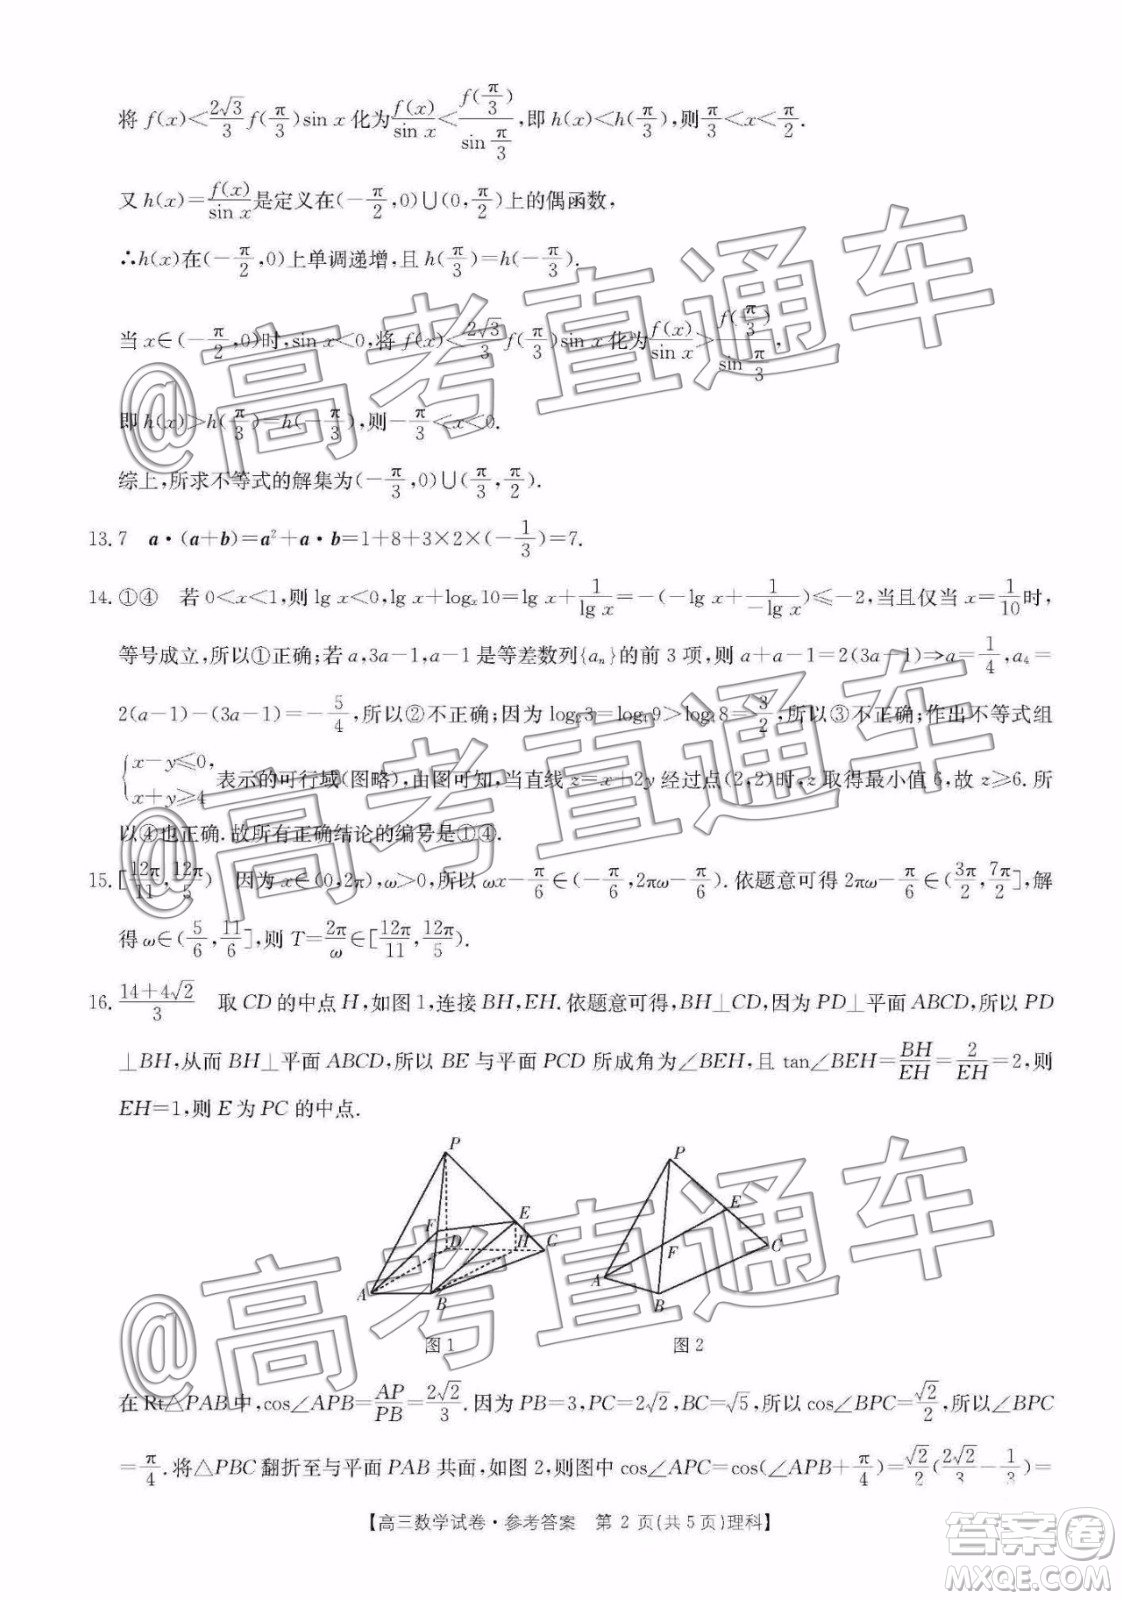 将 f(x)<\frac{2\sqrt{3}}{3}f(\frac{π}{3})sin x 化为\frac{f(x)}{sin x}<\frac{f(\frac{π}{3})}{sin\frac{π}{3}},即 h(x)<h(\frac{π}{3}),则\frac{π}{3}<x<\frac{π}{2}.
又 h(x)=\frac{f(x)}{sin x}是定义在(-\frac{π}{2},0)∪(0,\frac{π}{2})上的偶函数,
∴h(x)在(-\frac{π}{2},0)上单调递增,且 h(\frac{π}{3})=h(-\frac{π}{3}).
当 x∈(-\frac{π}{2},0)时,sin x<0,将 f(x)<\frac{2\sqrt{3}}{3}f(\frac{π}{3})sin x 化为\frac{f(x)}{sin x}>\frac{f(\frac{π}{3})}{sin\frac{π}{3}},
即 h(x)>h(\frac{π}{3})=h(-\frac{π}{3}),则-\frac{π}{3}<x<0.
综上,所求不等式的解集为(-\frac{π}{3},0)∪(\frac{π}{3},\frac{π}{2}).
13. 7 a·(a+b)=a²+a·b=1+8+3×2×(-\frac{1}{3})=7.
14. ①④ 若 0<x<1,则 lg x<0,lg x+logₓ10=lg x+\frac{1}{lg x}=-(-lg x+\frac{1}{-lg x})≤-2,当且仅当 x=\frac{1}{10}时,
等号成立,所以①正确;若 a,3a-1,a-1 是等差数列{aₙ}的前 3 项,则 a+a-1=2(3a-1)⇒a=\frac{1}{4},a₄=
2(a-1)-(3a-1)=-\frac{5}{4},所以②不正确;因为 log₂3=log₄9>log₄8=\frac{3}{2},所以③不正确;作出不等式组
{x-y≤0, x+y≥4 表示的可行域(图略),由图可知,当直线 z=x+2y 经过点(2,2)时,z 取得最小值 6,故 z≥6.所
以④也正确.故所有正确结论的编号是①④.
15. [\frac{12π}{11},\frac{12π}{5}) 因为 x∈(0,2π),ω>0,所以 ωx-\frac{π}{6}∈(-\frac{π}{6},2πω-\frac{π}{6}).依题意可得 2πω-\frac{π}{6}∈(\frac{3π}{2},\frac{7π}{2}],解
得 ω∈(\frac{5}{6},\frac{11}{6}],则 T=\frac{2π}{ω}∈[\frac{12π}{11},\frac{12π}{5}).
16. \frac{14+4\sqrt{2}}{3} 取 CD 的中点 H,如图 1,连接 BH,EH.依题意可得,BH⊥CD,因为 PD⊥平面 ABCD,所以 PD
⊥BH,从而 BH⊥平面 ABCD,所以 BE 与平面 PCD 所成角为∠BEH,且 tan∠BEH=\frac{BH}{EH}=\frac{2}{EH}=2,则
EH=1,则 E 为 PC 的中点.
P
E
F
D
H
C
A
B
图 1
P
E
F
C
A
B
图 2
在 Rt△PAB 中,cos∠APB=\frac{AP}{PB}=\frac{2\sqrt{2}}{3}.因为 PB=3,PC=2\sqrt{2},BC=\sqrt{5},所以 cos∠BPC=\frac{\sqrt{2}}{2},所以∠BPC
=\frac{π}{4}.将△PBC 翻折至与平面 PAB 共面,如图 2,则图中 cos∠APC=cos(∠APB+\frac{π}{4})=\frac{\sqrt{2}}{2}(\frac{2\sqrt{2}}{3}-\frac{1}{3})=
【高三数学试卷·参考答案 第 2 页(共 5 页)理科】
@高考直通车
@高考直通车
@高考直通车
答案卷
MXQE.COM